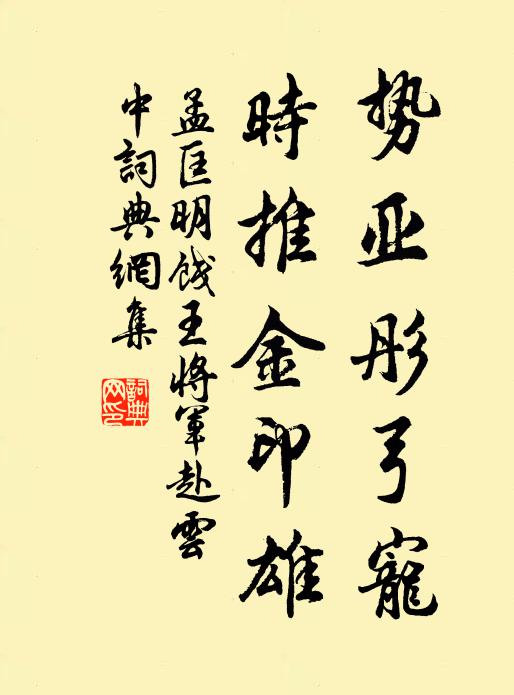 势亚彤弓寵
時推金印雄
孟匡明餞王将軍赴雲
中詞典網集
詞典
网印